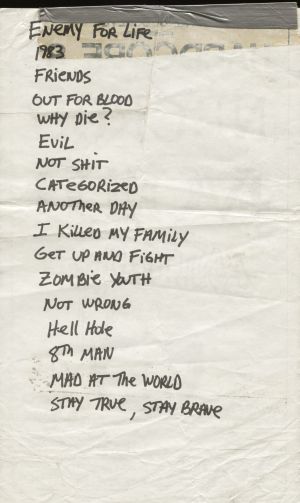 ENEMY FOR LIFE
1983
FRIENDS
OUT FOR BLOOD
WHY DIE?
EVIL
NOT SHIT
CATEGORIZED
ANOTHER DAY
I KILLED MY FAMILY
GET UP AND FIGHT
ZOMBIE YOUTH
NOT WRONG
Hell Hole
8TH MAN
MAD AT THE WORLD
STAY TRUE, STAY BRAVE